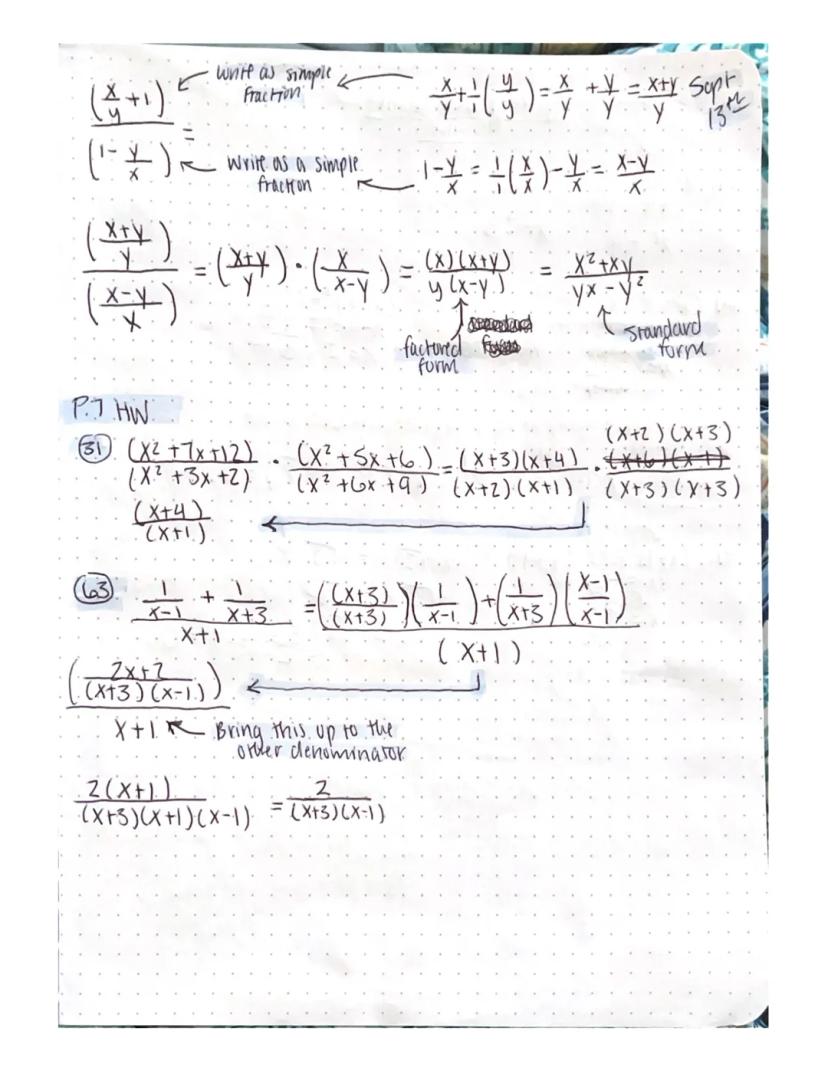 (x/y + 1) ← write as simple fraction ← x/y + 1/1 (y/y) = x/y + y/y = x+y/y Sept 13th
=
(1 - y/x) ← write as a simple fraction ← 1 - y/x = 1/1 (x/x) - y/x = x-y/x
(x+y/y) / (x-y/x) = (x+y/y) · (x/x-y) = (x)(x+y) / y(x-y) = x²+xy / yx - y²
factored form
standard form
P.7 HW
31 (x²+7x+12)/(x²+3x+2) · (x²+5x+6)/(x²+6x+9) = (x+3)(x+4)/(x+2)(x+1) · (x+2)(x+3)/(x+3)(x+3)
(x+4)/(x+1) ←
63 (1/x-1 + 1/x+3) / x+1 = (((x+3)/(x+3))(1/x-1) + (1/x+3)(x-1/x-1)) / (x+1)
(2x+2/(x+3)(x-1)) / x+1 ←
← Bring this up to the
other denominator
2(x+1)/(x+3)(x+1)(x-1) = 2/(x+3)(x-1)